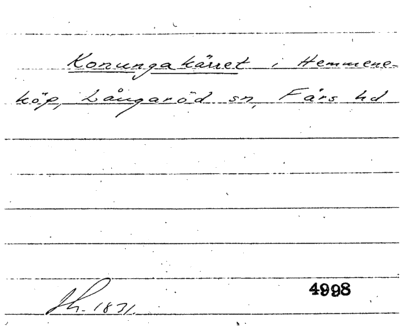 Konungakärret i Hemmene-
köp, Långaröd sn, Färs hd
1831.
4998